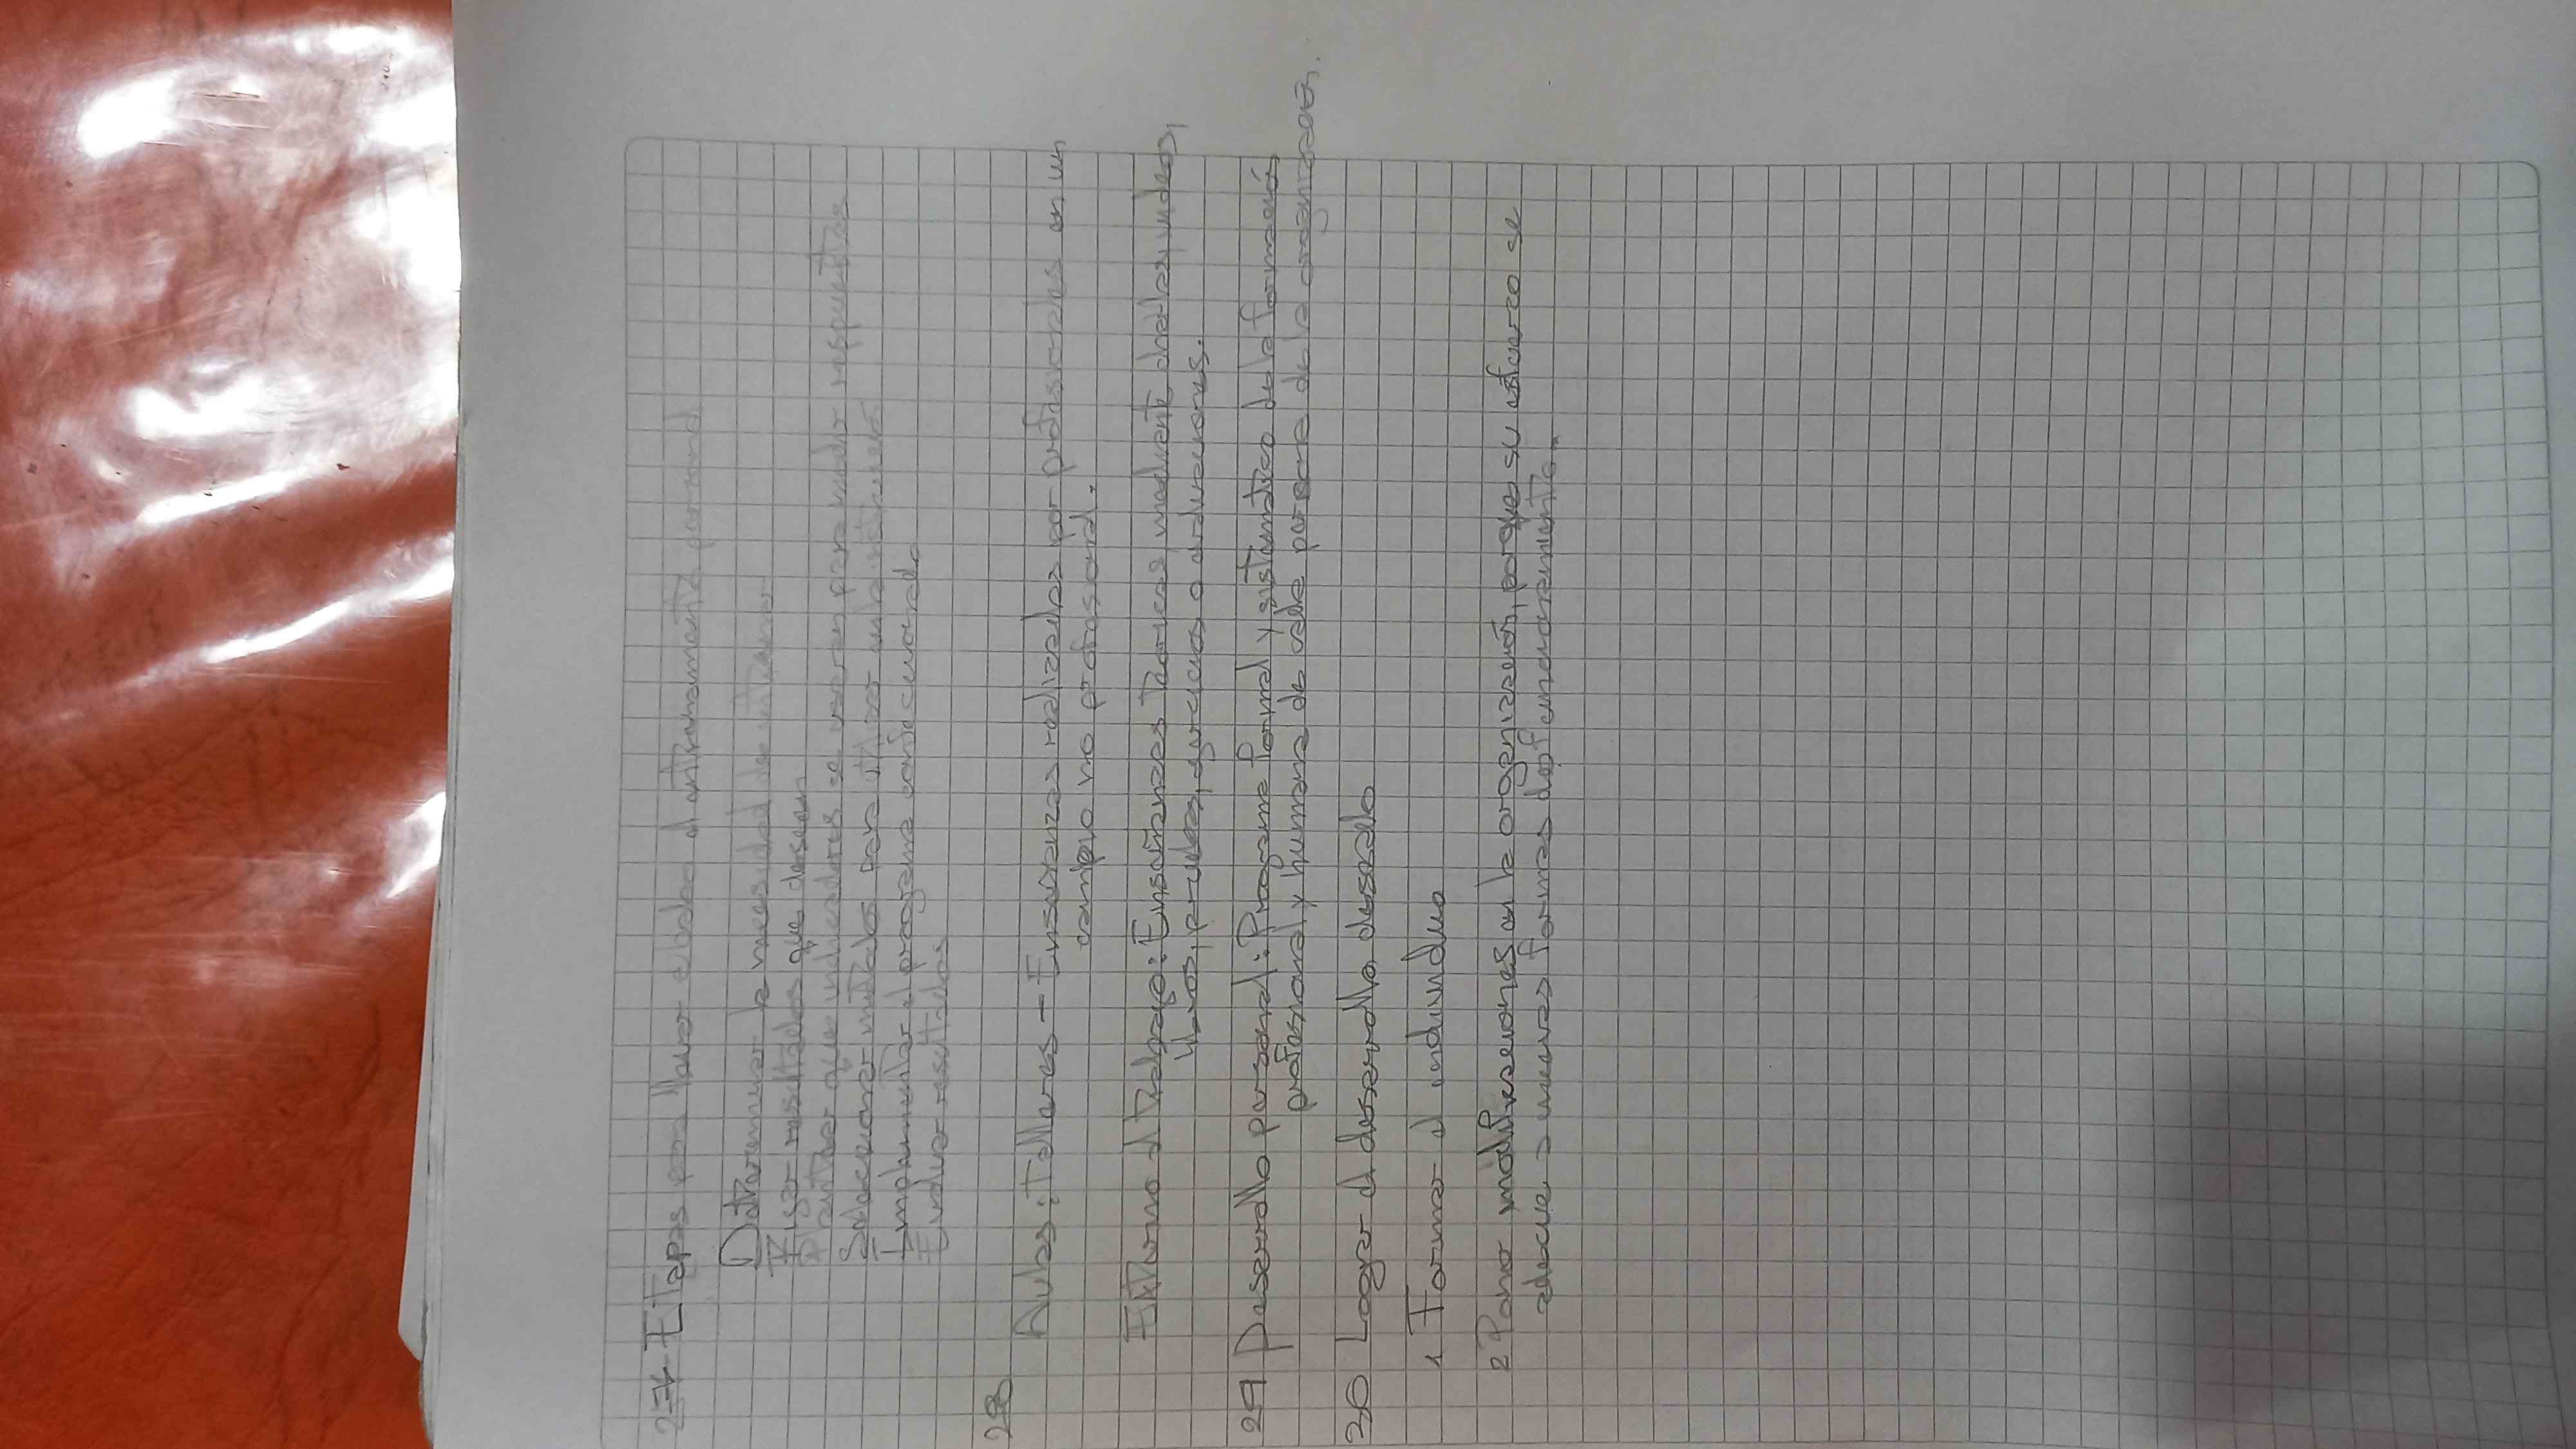 27 Etapas para llevar a cabo el entrenamiento personal
Determinar la necesidad de entrenar
Fijar resultados que desean
Plantear que indicadores se usaran para medir respuestas
Seleccionar metodos para utilizar
Implementar el programa confeccionado
Evaluar resultados
28
Aulas: Talleres - Enseñanzas realizadas por profesionales en un
campo no profesional.
Entorno al Trabajo: Enseñanzas Teoricas mediante charlas, videos,
libros, pruebas, ejercicios o evaluaciones.
29 Desarrollo personal: Programa formal y sistematico de la formación
profesional y humana de cada persona de la organización.
30 Lograr el desarrollo deseado
1 Formar el individuo
2 Poner modificaciones en la organización, porque su esfuerzo se
adecue a nuevas formas de funcionamiento.